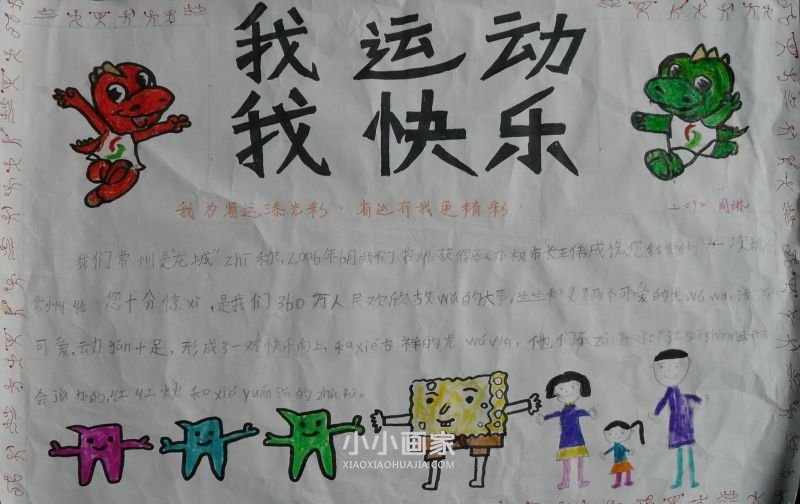 我 运 动
我 快 乐
我为省运添光彩·省运有我更精彩·
二<9> 周琳
我们常州是"龙城" zhī称,2006年6月我们常州获得 市长王伟成说,您给常州一次机会
常州给您十分惊xǐ,是我们360万人民欢欣故wǔ的大事, 两个可爱的龙wáwa,活泼
可爱,动gǎn十足,形成了一对快乐向上,和xié吉祥的龙wáwa,他们
会 办的,红红火火和xié yuán满的zhù
小小画家
XIAOXIAOHUAJIA.COM